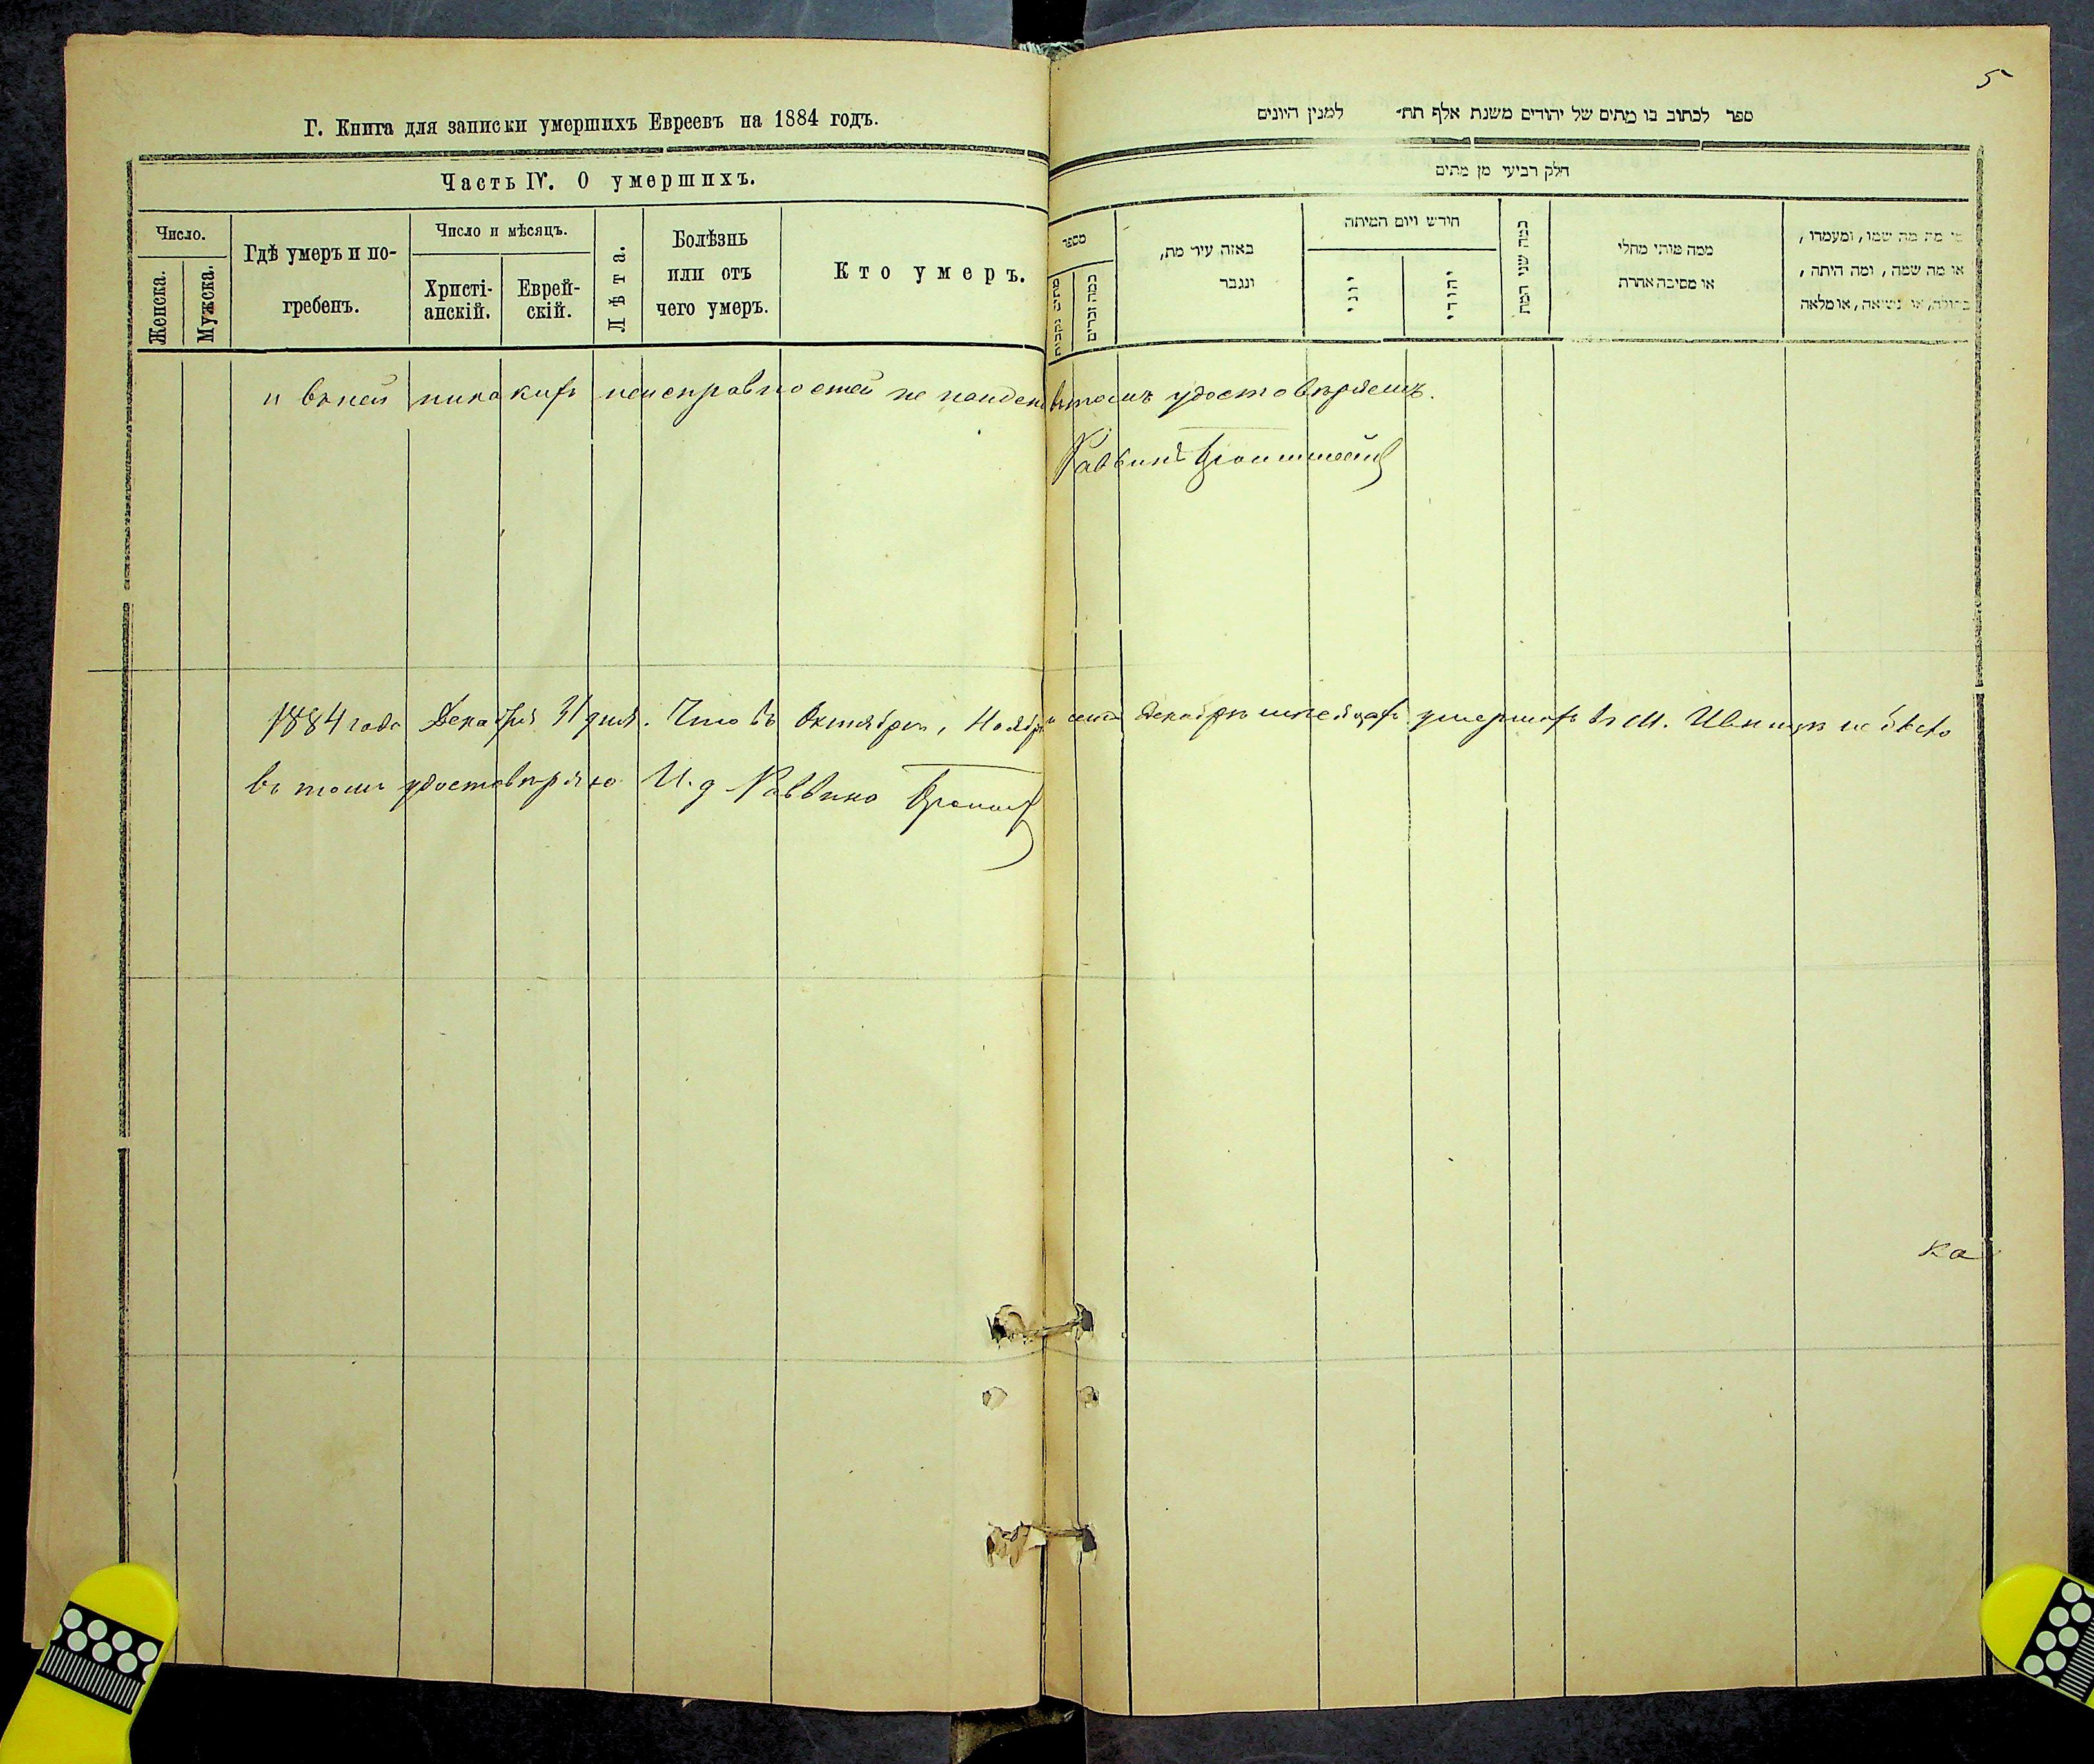 5
Г. Книга для записки умершихъ Евреевъ на 1884 годъ.
ספר לכתוב בו מתים של יהודים משנת אלף תת״ למנין היונים
Часть IV. О умершихъ.
חלק רביעי מן מתים
Число.
Женска.
Мужска.
Гдѣ умеръ и по-
гребенъ.
Число и мѣсяцъ.
Христі-
анскій.
Еврей-
скій.
Лѣта.
Болѣзнь
или отъ
чего умеръ.
Кто умеръ.
מספר
מתים נקבות
כמה זכרים
באזה עיר מת,
ונגבר
חודש ויום המיתה
יוני
יהודי
כמה שני המת
ממה מותי מחלי
או מסיבה אחרת
מי מת מה שמו, ומעמדו,
או מה שמה, ומה היתה,
בתולה, או נשואה, או מלאה
и въ ней никакихъ неисправностей не найдено въ томъ удостовѣряемъ.
Раввинъ
1884 года Декабря 31 дня. Что въ Октябрѣ, Ноябрѣ и сего Декабрѣ мѣсяцахъ умершихъ въ м. Ивницѣ не было
въ томъ удостовѣряю И. д Раввина
ка